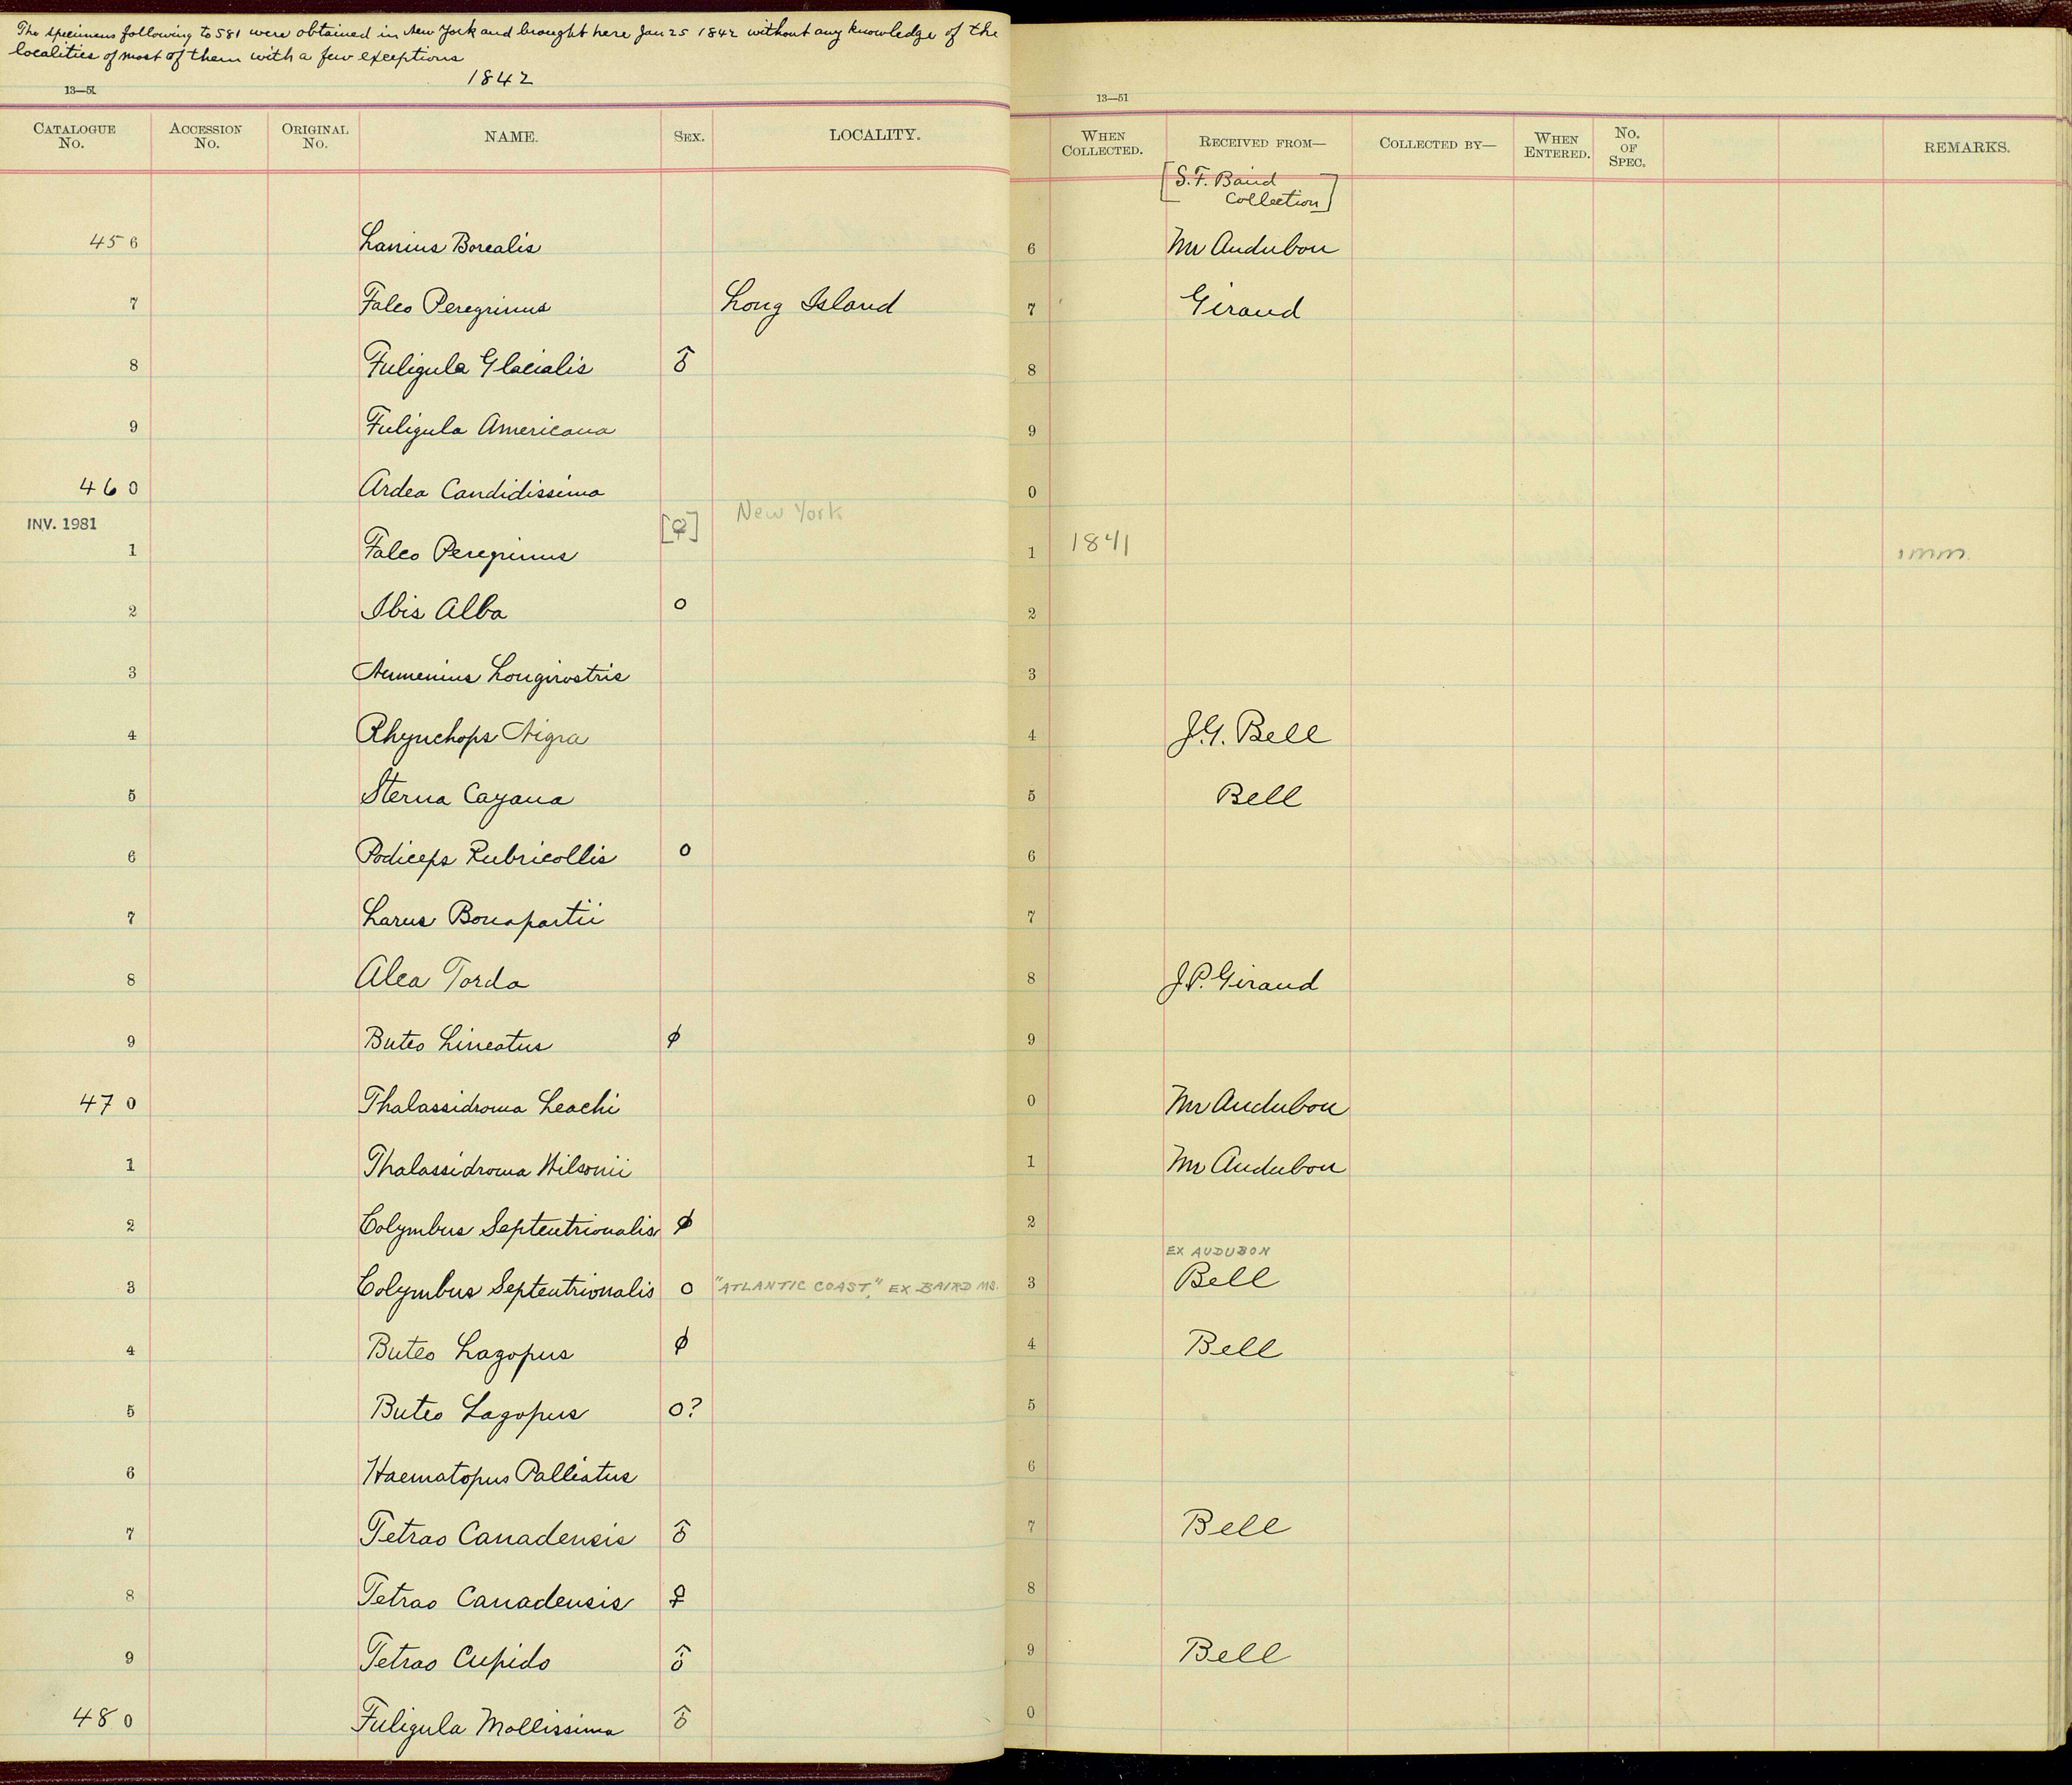 The specimens following to 581 were obtained in New York and brought here Jan 25 1842 without any knowledge of the
localities of most of them with a few exceptions
1842
13—51
13—51
CATALOGUE No. ACCESSION No. ORIGINAL No. NAME. SEX. LOCALITY. WHEN COLLECTED. RECEIVED FROM— COLLECTED BY— WHEN ENTERED. No. OF SPEC. REMARKS.
[S. F. Baird
Collection]
456 Lanius Borealis 6 Mr Audubon
7 Falco Peregrinus Long Island 7 Giraud
8 Fuligula Glacialis ♂ 8
9 Fuligula Americana 9
460 Ardea Candidissima 0
INV. 1981 [♀] New York
1 Falco Peregrinus 1 1841 imm.
2 Ibis Alba o 2
3 Numenius Longirostris 3
4 Rhynchops Nigra 4 J. G. Bell
5 Sterna Cayana 5 Bell
6 Podiceps Rubricollis o 6
7 Larus Bonapartii 7
8 Alca Torda 8 J. P. Giraud
9 Buteo Lineatus ϕ 9
470 Thalassidroma Leachi 0 Mr Audubon
1 Thalassidroma Wilsonii 1 Mr Audubon
2 Colymbus Septentrionalis ϕ 2
EX AUDUBON
3 Colymbus Septentrionalis o "ATLANTIC COAST," EX BAIRD MS. 3 Bell
4 Buteo Lagopus ϕ 4 Bell
5 Buteo Lagopus o? 5
6 Haematopus Palliatus 6
7 Tetrao Canadensis ♂ 7 Bell
8 Tetrao Canadensis ♀ 8
9 Tetrao Cupido ♂ 9 Bell
480 Fuligula Mollissima ♂ 0